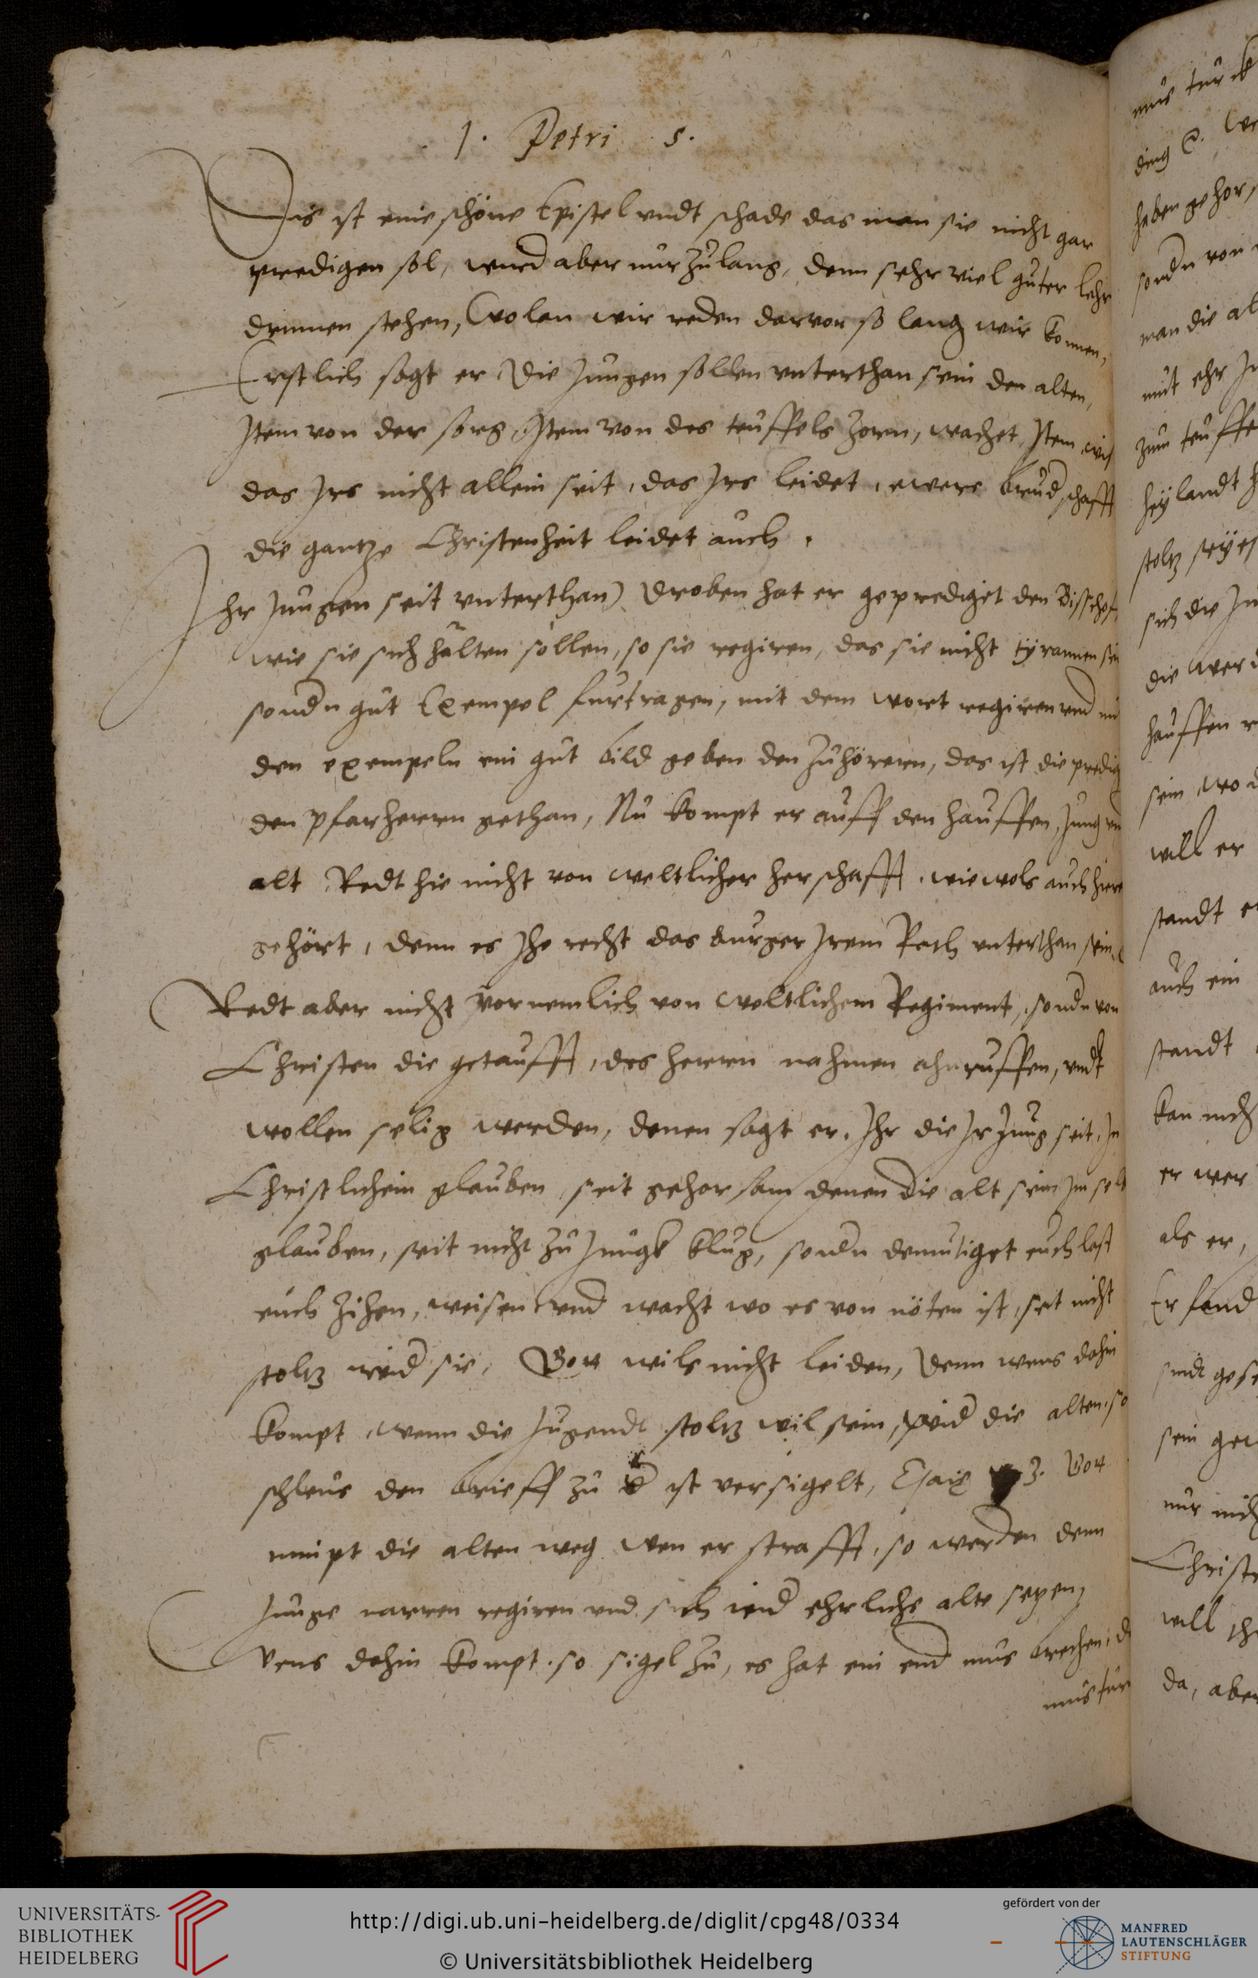 1. Petri 5.
Dis ist eine schöne Epistel undt schade das man sie nicht gar
predigen sol, wurd aber nur zu lang, denn sehr viel guter lehr
drinnen stehen, Wolan wir reden darvon so lang wir konnen,
Erstlich sagt er Die Jungen sollen unterthan sein den alten,
Item von der sorg, Item von des teuffels zorn, wachet, Item wist
das Irs nicht allein seit, das Irs leidet, ewere brudschafft
die gantze Christenheit leidet auch.
Ihr Jungen seit unterthan) Droben hat er geprediget den Bisschof
wie sie sich halten sollen, so sie regiren, das sie nicht tyrannen sein
sondn gut Exempel furtragen, mit dem wort regiren und mit
den exempeln ein gut bild geben den zuhörern, das ist die predig
den pfarherrn gethan, Nu kompt er auff den hauffen, Jung und
alt Redt hie nicht von weltlicher herschafft, wiewols auch hierein
gehört, denn es ihe recht das burger Irem Rath unterthan sein
Redt aber nicht vornemlich von weltlichem Regiment, sondn von
Christen die getaufft, des herrn nahmen ahnruffen, undt
wollen selig werden, denen sagt er, Ihr die Ir Jung seit, In
Christlichem glauben, seit gehorsam denen die alt sein Im selb
glauben, seit nicht zu Jungk klug, sondn demutiget euch last
euch zihen, weisen und macht wo es von nöten ist, seit nicht
stoltz wid sie, Gott wils nicht leiden, Denn wens dahin
kompt, wenn die Jugendt stoltz wil sein, wid die alten, so
schleus den brieff zu Er ist versigelt, Esaie 3. Gott
nimpt die alten weg wen er strafft, so werden denn
Junge narren regiren und sich wid ehrliche alte setzen,
Wens dahin kompt, so sigel zu, es hat ein end mus brechen, d
mus tur
mus turck
ding
haben gehor,
sondn von
man die al
mit ehr In
zum teuffe
heylandt
stoltz seyes
sich die Ju
die werd
hauffen
sein wo
will er
standt
auch ein
standt
kan nicht
er wer
als er,
Er sand
sindt gese
sein
nur nich
Christ
will
da, aber
UNIVERSITÄTS-
BIBLIOTHEK
HEIDELBERG
http://digi.ub.uni-heidelberg.de/diglit/cpg48/0334
© Universitätsbibliothek Heidelberg
gefördert von der
MANFRED
LAUTENSCHLÄGER
STIFTUNG